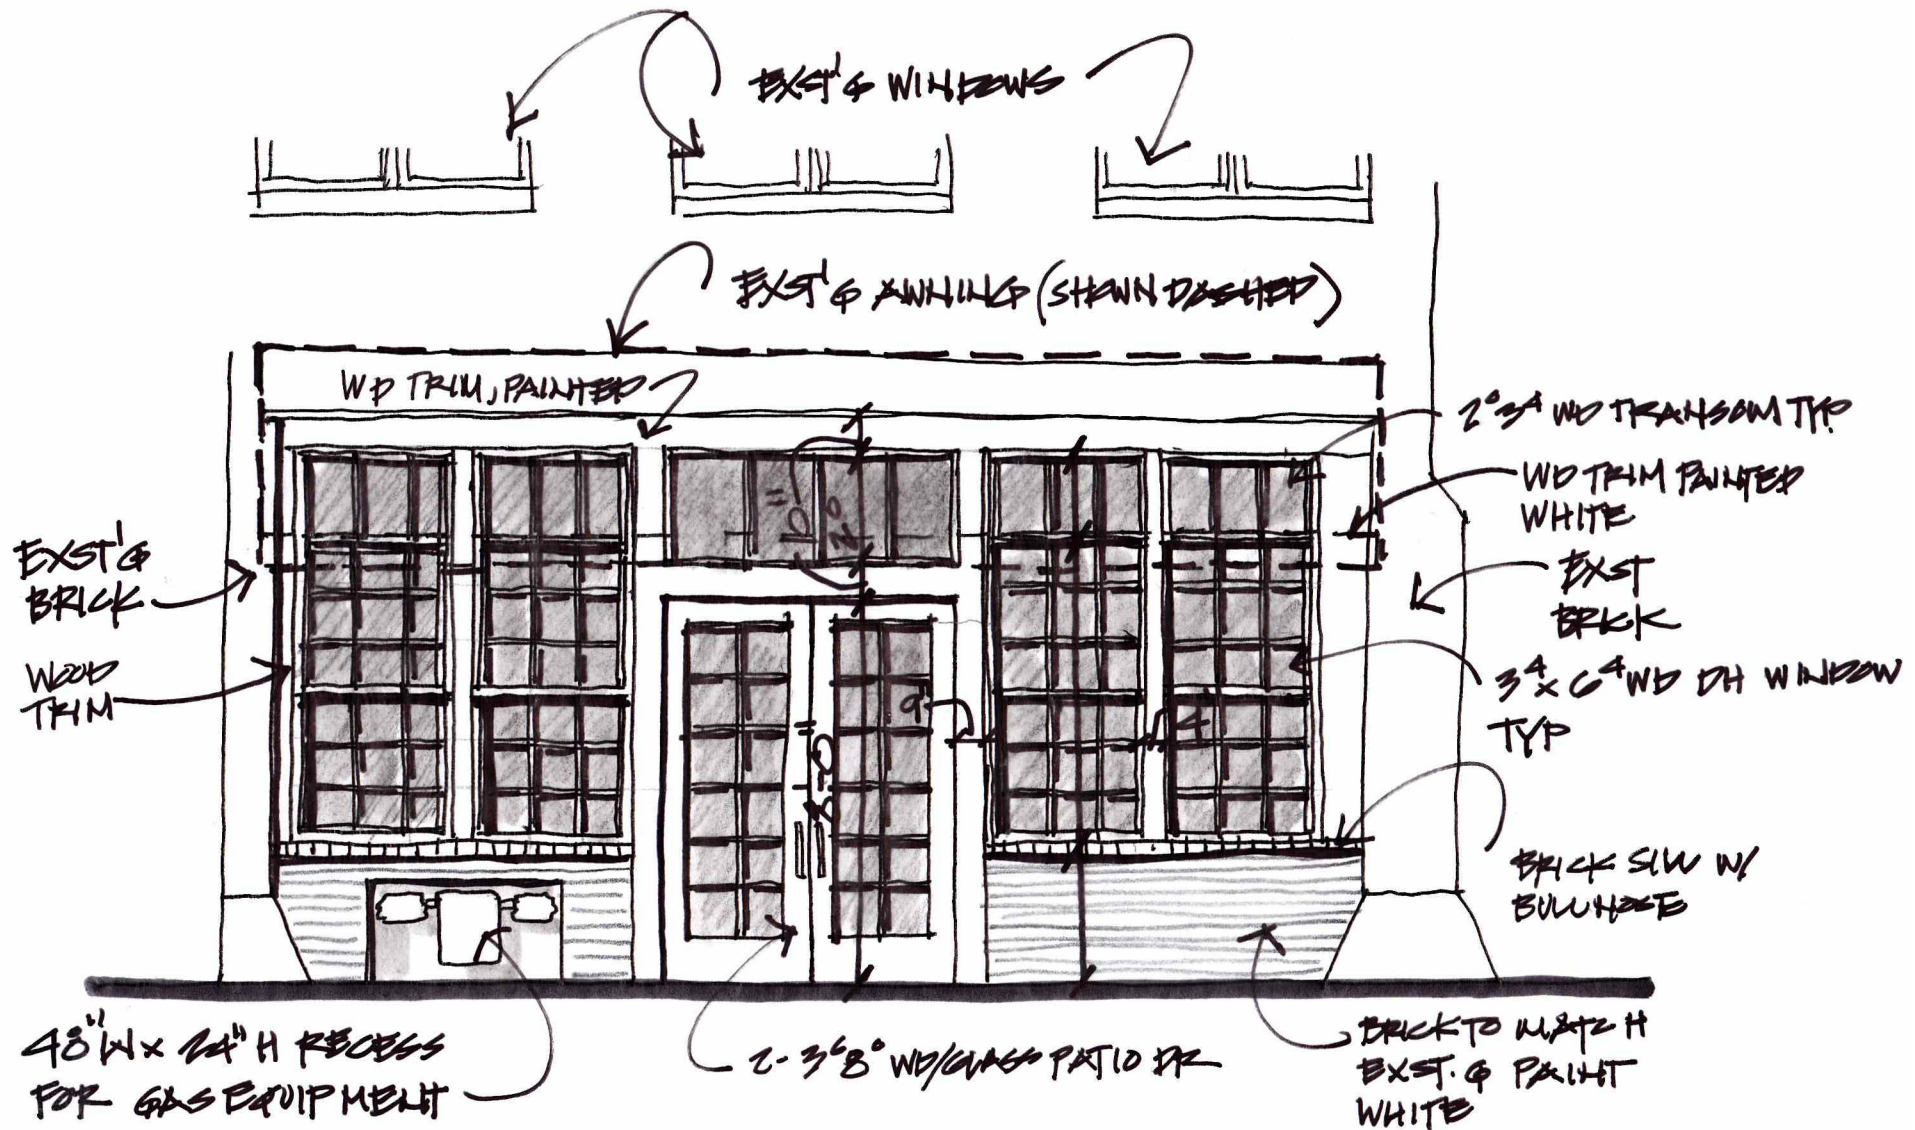 EXST'G WINDOWS
EXST'G AWNING (SHOWN DASHED)
WD TRIM, PAINTED
2⁰3⁴ WD TRANSOM TYP.
WD TRIM PAINTED
WHITE
EXST'G
BRICK
EXST
BRICK
WOOD
TRIM
3⁴x6⁴ WD DH WINDOW
TYP
10"
2'0"
9"
4"
8'-0"
BRICK SILL W/
BULLNOSE
48"W x 24"H RECESS
FOR GAS EQUIPMENT
2-3⁰8⁰ WD/GLASS PATIO DR
BRICK TO MATCH
EXST.G PAINT
WHITE